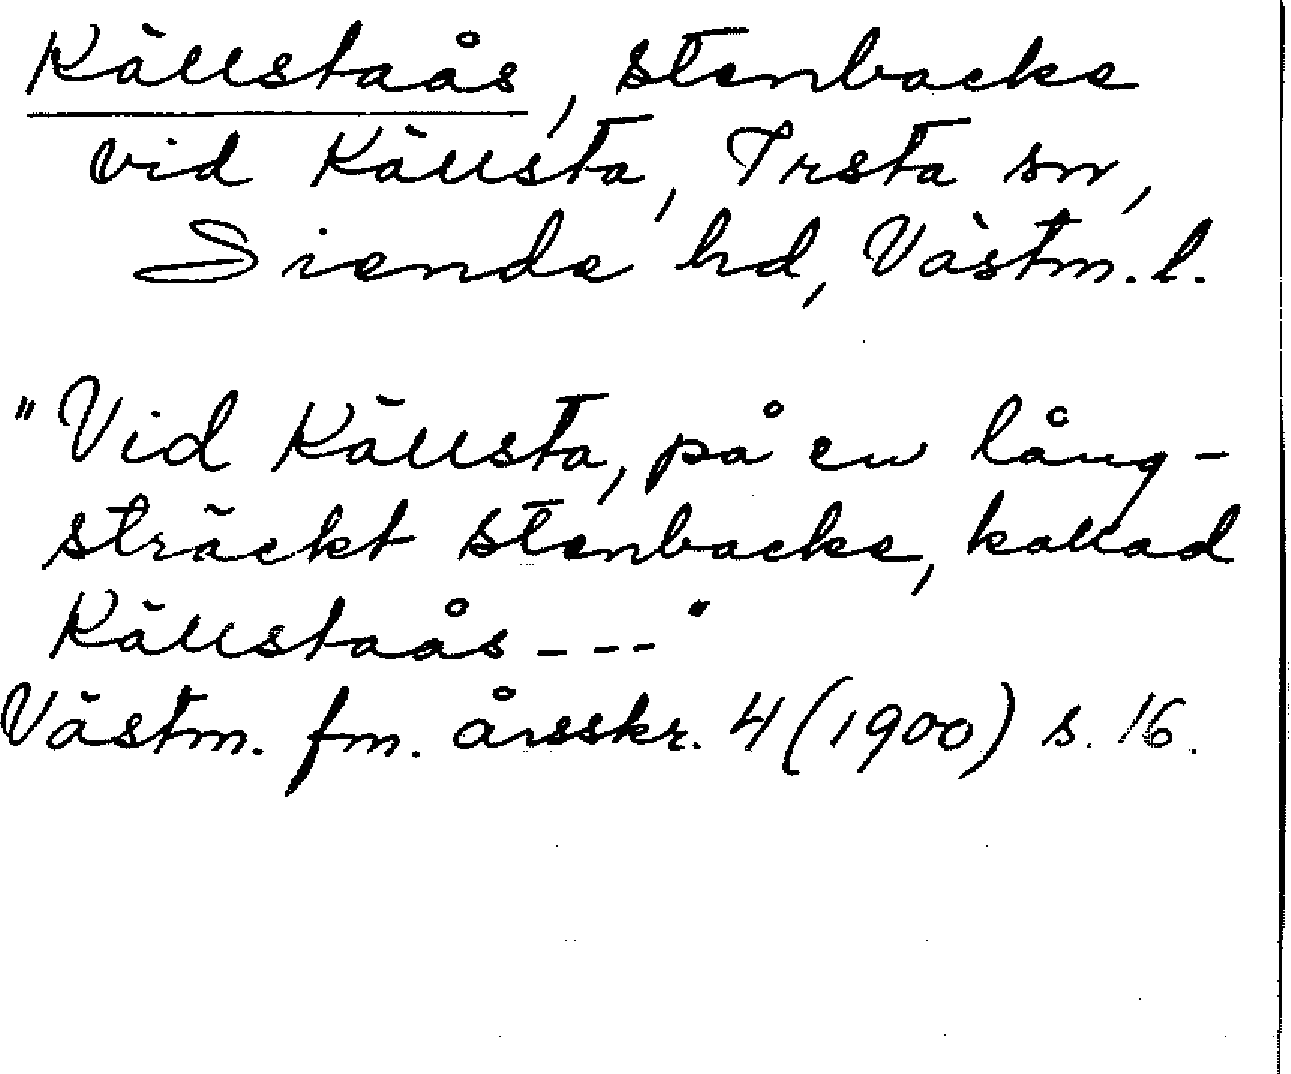 Källstaås, stenbacke
vid Källsta, Irsta sn,
Siende hd, Västm. l.
"Vid Källsta, på en lång-
sträckt stenbacke, kallad
Källstaås - - - "
Västm. fm. årsskr. 4 (1900) s. 16.